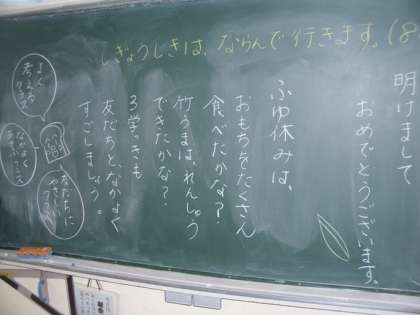 しぎょうしきは、ならんで行きます。(8
明けまして
おめでとうございます。
ふゆ休みは、
おもちをたくさん
食べたかな?
竹うまは、れんしゅう
できたかな?
3学っきも
友だちと、なかよく
すごしましょう。
よく
考える
クラス
なかよく
友だちに
やさしい
クラス